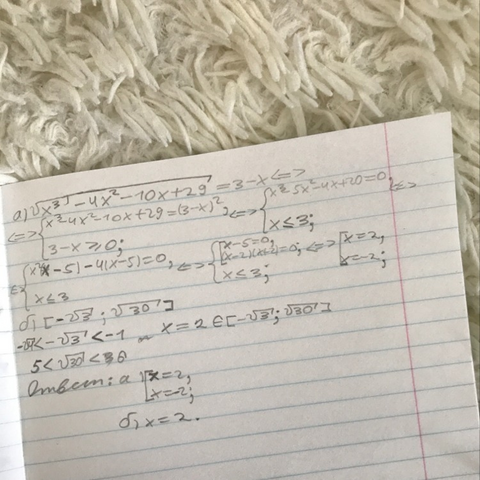 а) √(x³ - 4x² - 10x + 29) = 3 - x <=>
<=> { x³ - 4x² - 10x + 29 = (3-x)², 3 - x ≥ 0; <=> { x³ - 5x² - 4x + 20 = 0, x ≤ 3; <=>
<=> { x²(x - 5) - 4(x - 5) = 0, x ≤ 3 <=> { [ x - 5 = 0, (x-2)(x+2) = 0; x ≤ 3; <=> [ x = 2, x = -2;
б) [-√3; √30]
< -√3 < -1 x = 2 ∈ [-√3; √30]
5 < √30 < 6
Ответ: а) [ x = 2, x = -2;
б) x = 2.